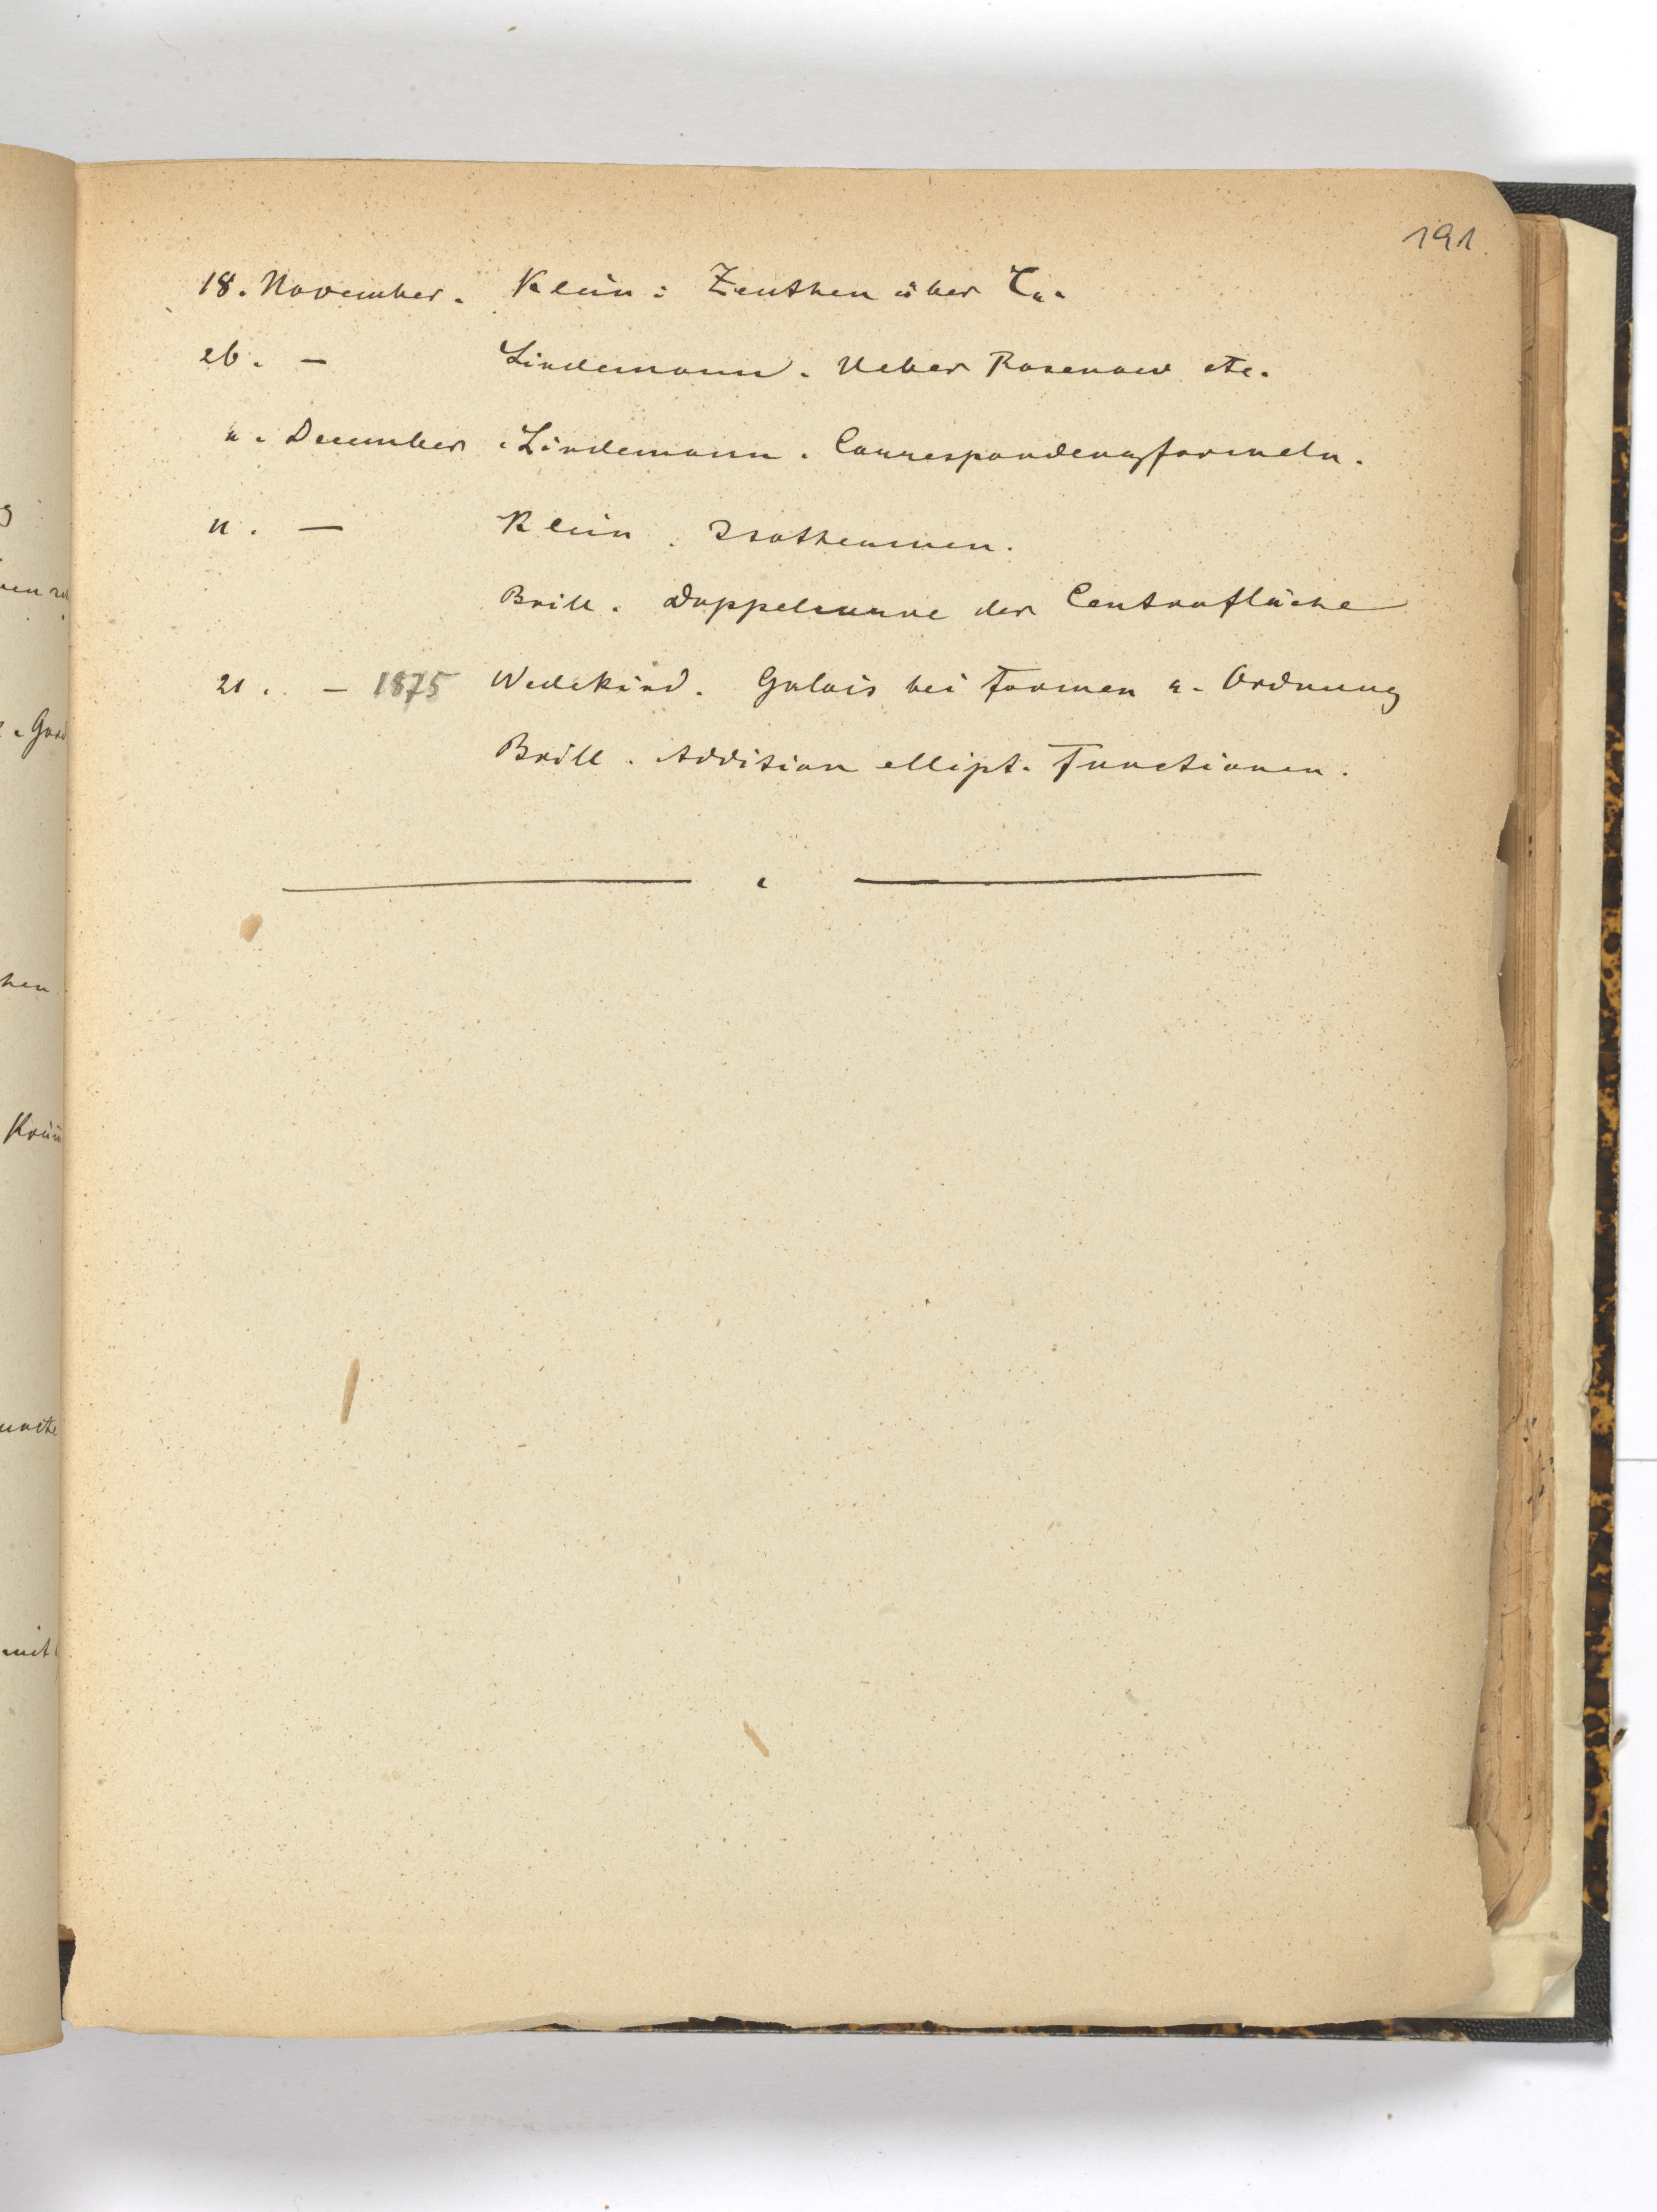 191.
18. November. Klein: Zeuthen über C4.
26. — Lindemann. Ueber Rosenow etc.
4. December. Lindemann. Correspondenzformeln.
11. — Klein. Isothermen.
Brill. Doppelcurve der Centrafläche
21. — 1875 Wedekind. Galois bei Formen 4. Ordnung
Brill. Addition ellipt. Functionen.